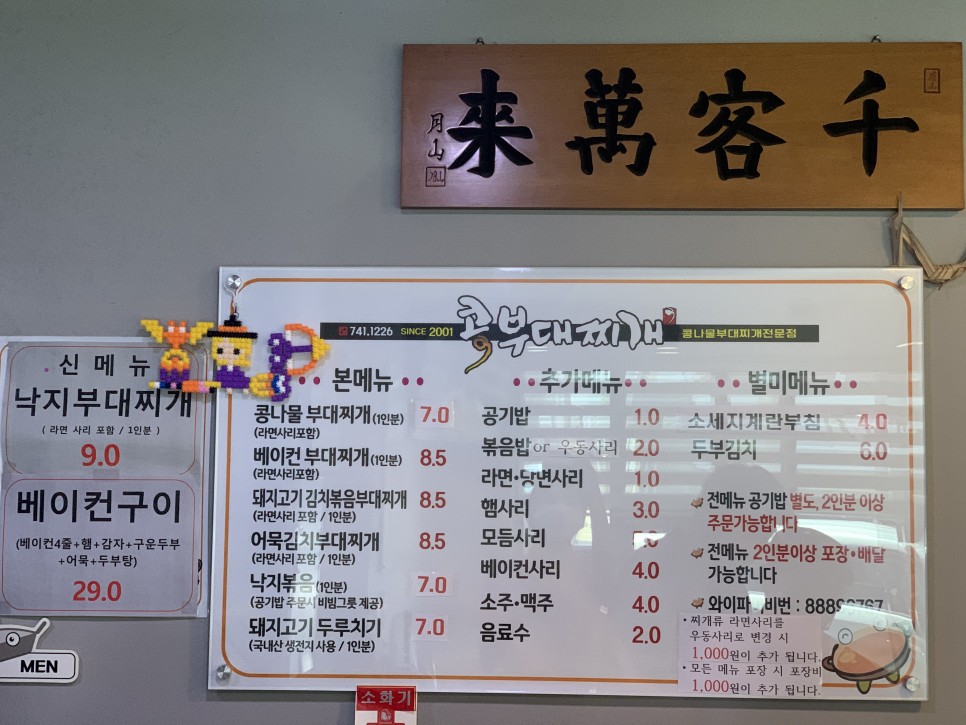 千客萬來
月山
신 메 뉴
낙지부대찌개
( 라면 사리 포함 / 1인분 )
9.0
베이컨구이
(베이컨4줄+햄+감자+구운두부
+어묵+두부탕)
29.0
MEN
741.1226 SINCE 2001 콩부대찌개 콩나물부대찌개전문점
본메뉴
콩나물 부대찌개(1인분) 7.0
(라면사리포함)
베이컨 부대찌개(1인분) 8.5
(라면사리포함)
돼지고기 김치볶음부대찌개 8.5
(라면사리 포함 / 1인분)
어묵김치부대찌개 8.5
(라면사리 포함 / 1인분)
낙지볶음(1인분) 7.0
(공기밥 주문시 비빔그릇 제공)
돼지고기 두루치기 7.0
(국내산 생전지 사용 / 1인분)
추가메뉴
공기밥 1.0
볶음밥 or 우동사리 2.0
라면·당면사리 1.0
햄사리 3.0
모듬사리
베이컨사리 4.0
소주·맥주 4.0
음료수 2.0
별미메뉴
소세지계란부침 4.0
두부김치 6.0
전메뉴 공기밥 별도, 2인분 이상
주문가능합니다
전메뉴 2인분이상 포장·배달
가능합니다
와이파 비번 :
• 찌개류 라면사리를
우동사리로 변경 시
1,000원이 추가 됩니다.
• 모든 메뉴 포장 시 포장비
1,000원이 추가 됩니다.
소화기